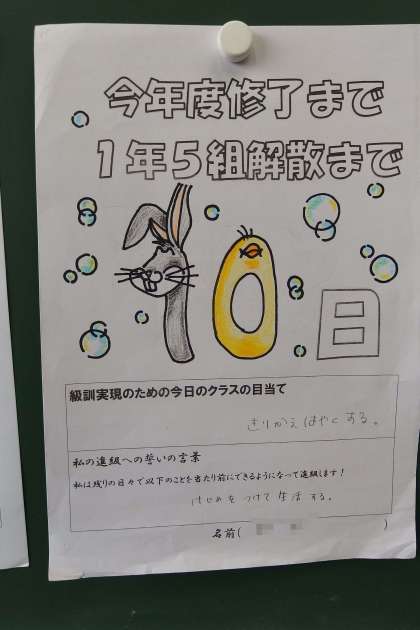 今年度修了まで
1年5組解散まで
10日
級訓実現のための今日のクラスの目当て
きりかえはやくする。
私の進級への誓いの言葉
私は残りの日々で以下のことを当たり前にできるようになって進級します！
けじめをつけて生活する。
名前( )